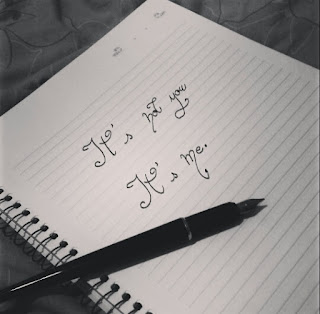 It's not you
It's me.